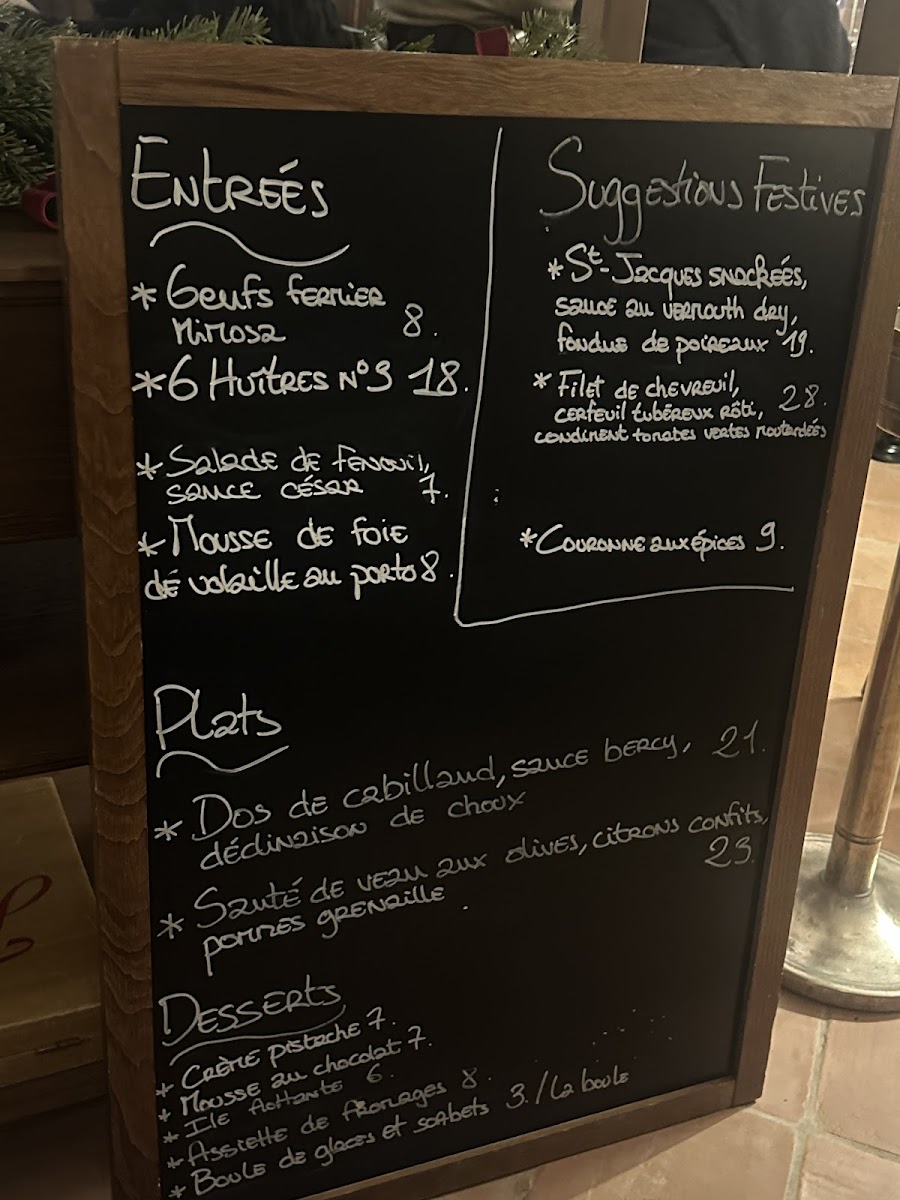 ENTREÉS
* Oeufs fermier
Mimosa 8.
* 6 HUÎTRES N°3 18.
* Salade de fenouil,
sauce césar 7.
* Mousse de foie
de volaille au porto 8.
Suggestions Festives
* St-Jacques snackées,
sauce au vermouth dry,
fondue de poireaux 19.
* Filet de chevreuil,
cerfeuil tubéreux rôti, 28.
condiment tomates vertes moutardées
* Couronne aux épices 9.
Plats
* Dos de cabillaud, sauce bercy, 21.
déclinaison de choux
* Sauté de veau aux olives, citrons confits,
pommes grenaille 23.
DESSERTS
* Crème pistache 7.
* Mousse au chocolat 7.
* Ile flottante 6.
* Assiette de fromages 8.
* Boule de glaces et sorbets 3./La boule